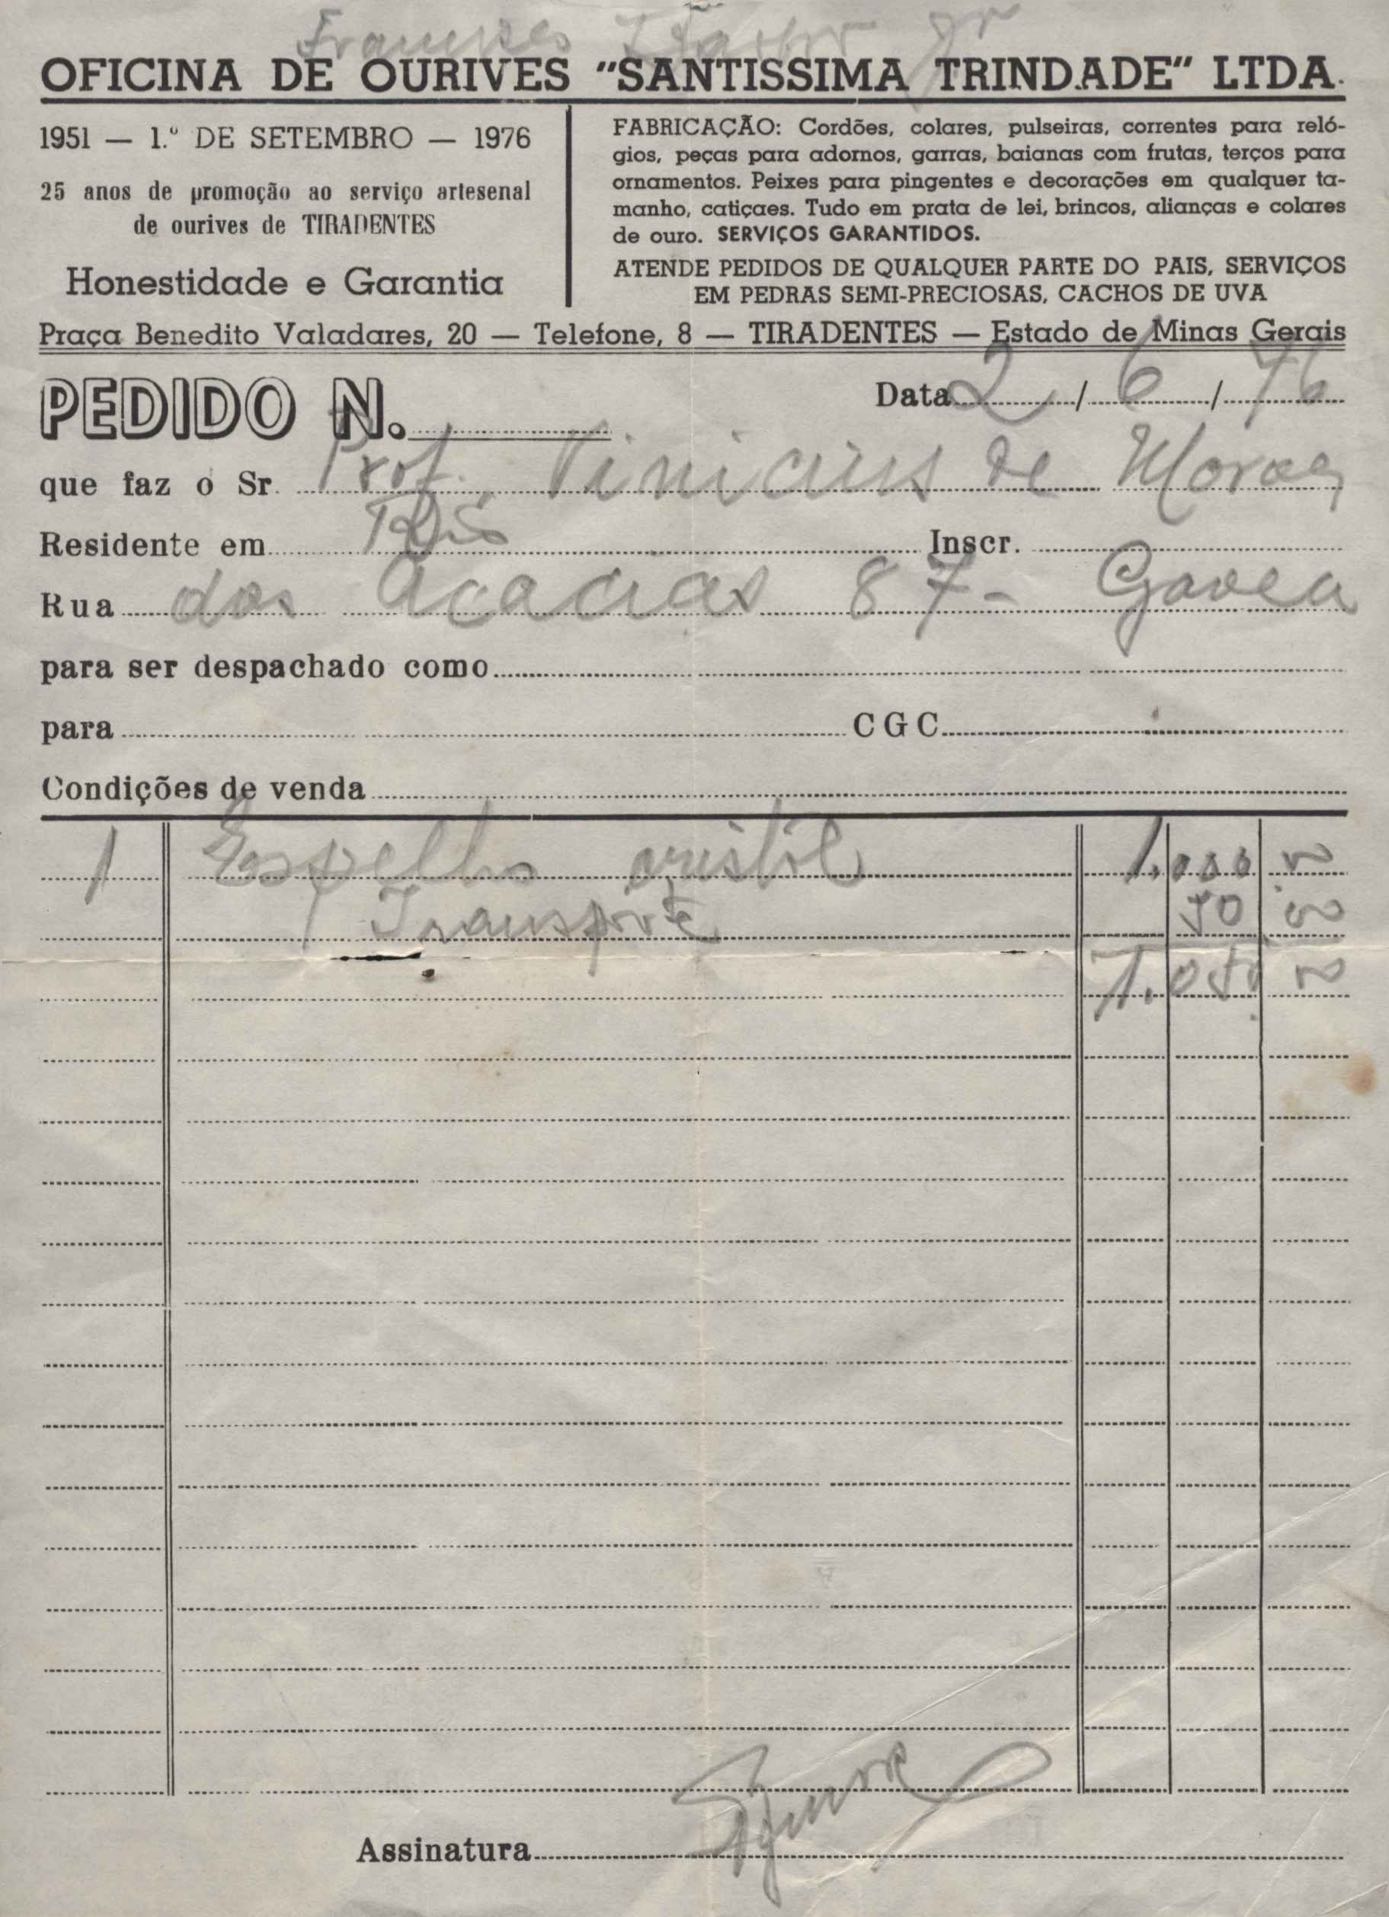 OFICINA DE OURIVES "SANTISSIMA TRINDADE" LTDA.
1951 — 1.º DE SETEMBRO — 1976
25 anos de promoção ao serviço artesenal
de ourives de TIRADENTES
Honestidade e Garantia
FABRICAÇÃO: Cordões, colares, pulseiras, correntes para reló-
gios, peças para adornos, garras, baianas com frutas, terços para
ornamentos. Peixes para pingentes e decorações em qualquer ta-
manho, catiçaes. Tudo em prata de lei, brincos, alianças e colares
de ouro. SERVIÇOS GARANTIDOS.
ATENDE PEDIDOS DE QUALQUER PARTE DO PAIS, SERVIÇOS
EM PEDRAS SEMI-PRECIOSAS, CACHOS DE UVA
Praça Benedito Valadares, 20 — Telefone, 8 — TIRADENTES — Estado de Minas Gerais
PEDIDO N. Data 2 / 6 / 76
que faz o Sr. Prof. Vinicius de Moraes
Residente em Rio Inscr.
Rua das Acacias 87 - Gavea
para ser despachado como
para CGC
Condições de venda
1 Espelho cristol 1.000 00
Transporte 50 00
1.050 00
Assinatura